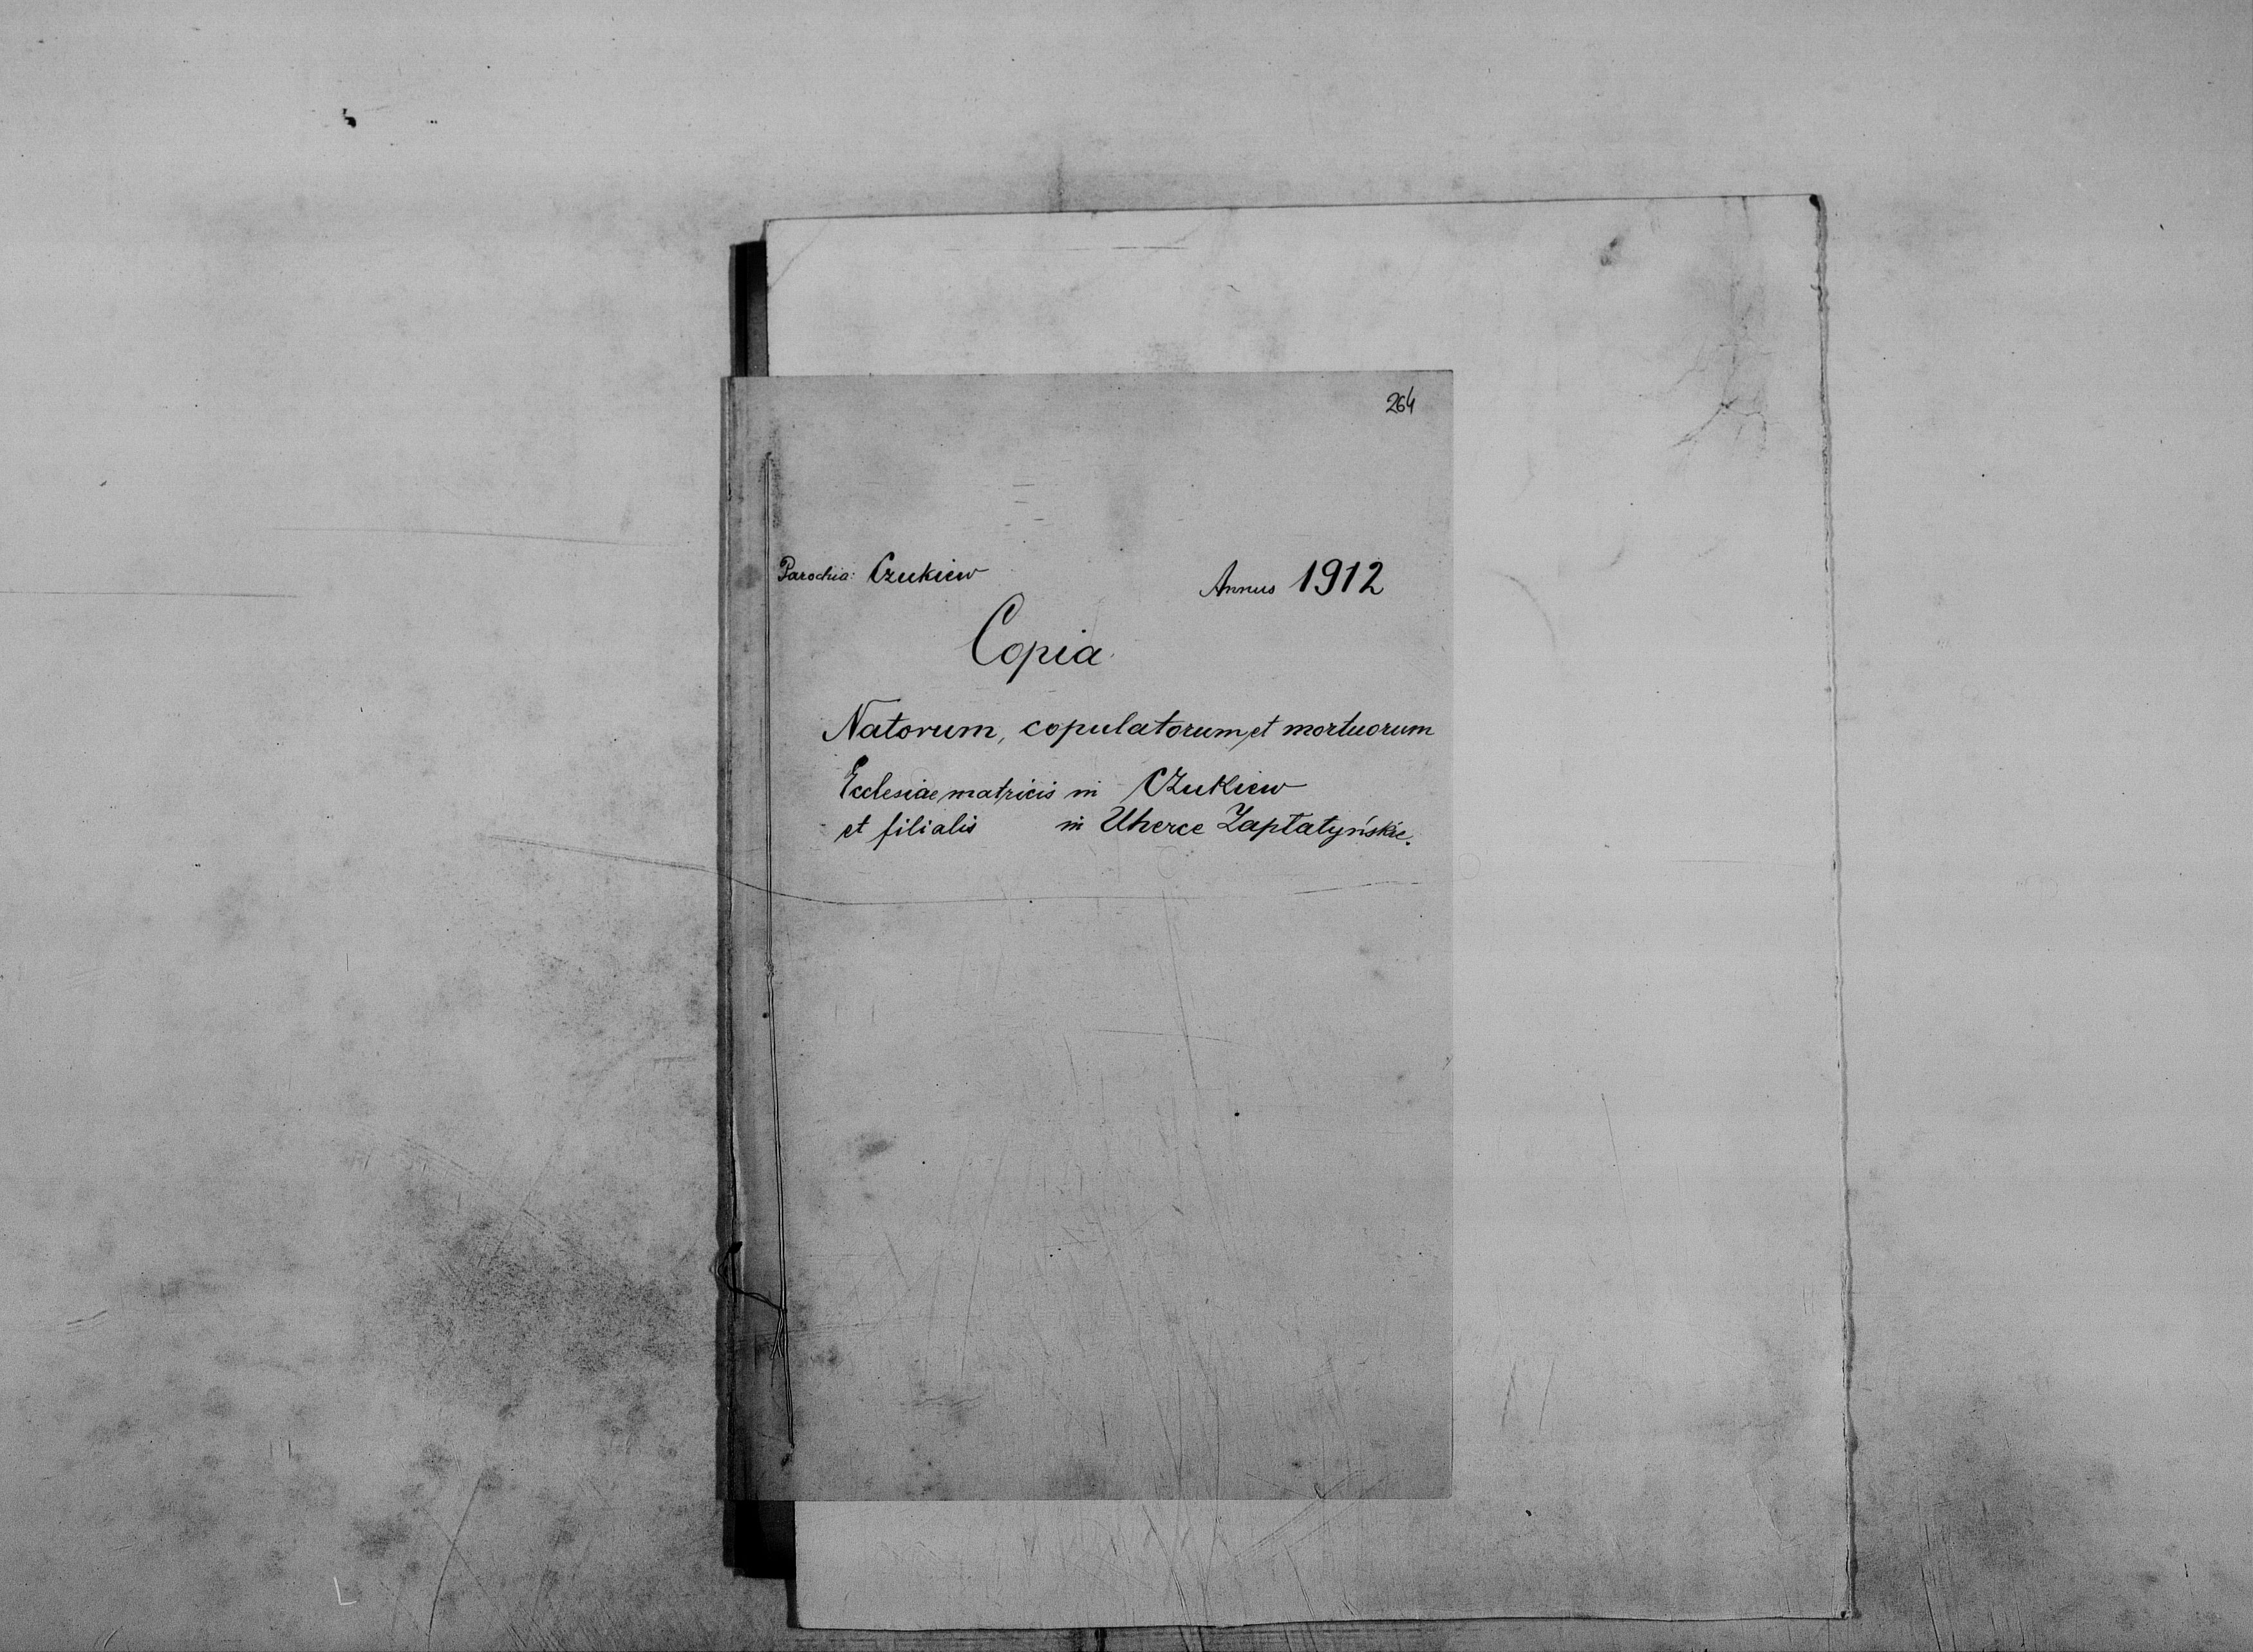 264
Parochia: Czukiew Annus 1912
Copia
Natorum, copulatorum, et mortuorum
Ecclesiae matricis in Czukiew
et filialis in Uherce Zapłatyńskie.